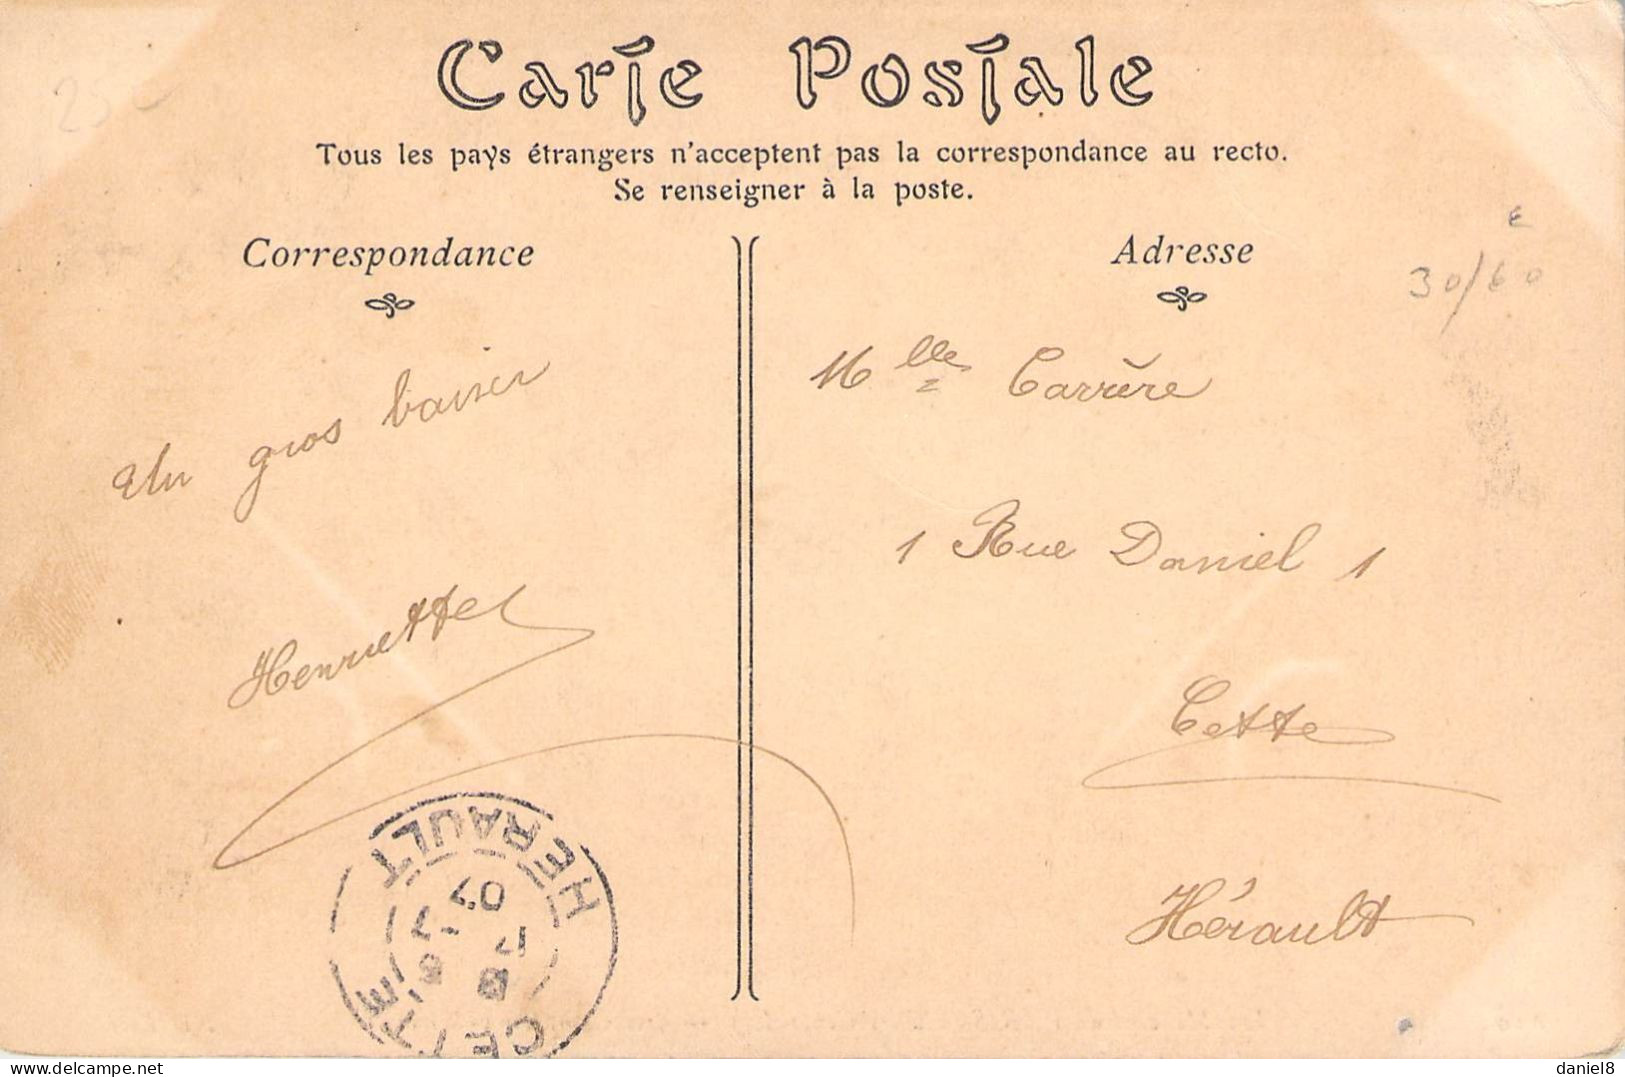 Carte Postale
Tous les pays étrangers n'acceptent pas la correspondance au recto.
Se renseigner à la poste.
Correspondance
Un gros baiser
Henriette
Adresse
30/60
Mlle Carrère
1 Rue Daniel 1
Cette
Hérault
CETTE
HERAULT
07
daniel8